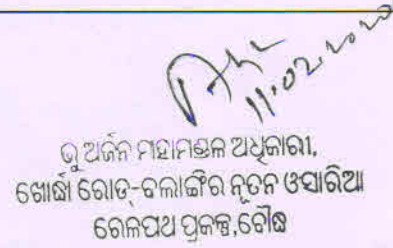 ୧୧.୦୨.୨୦୨୦
ଭୁ ଅର୍ଜନ ମହାମଣ୍ଡଳ ଅଧିକାରୀ,
ଖୋର୍ଦ୍ଧା ରୋଡ-ବଲାଙ୍ଗିର ନୂତନ ଓସାରିଆ
ରେଳପଥ ପ୍ରକଳ୍ପ,ବୌଦ୍ଧ